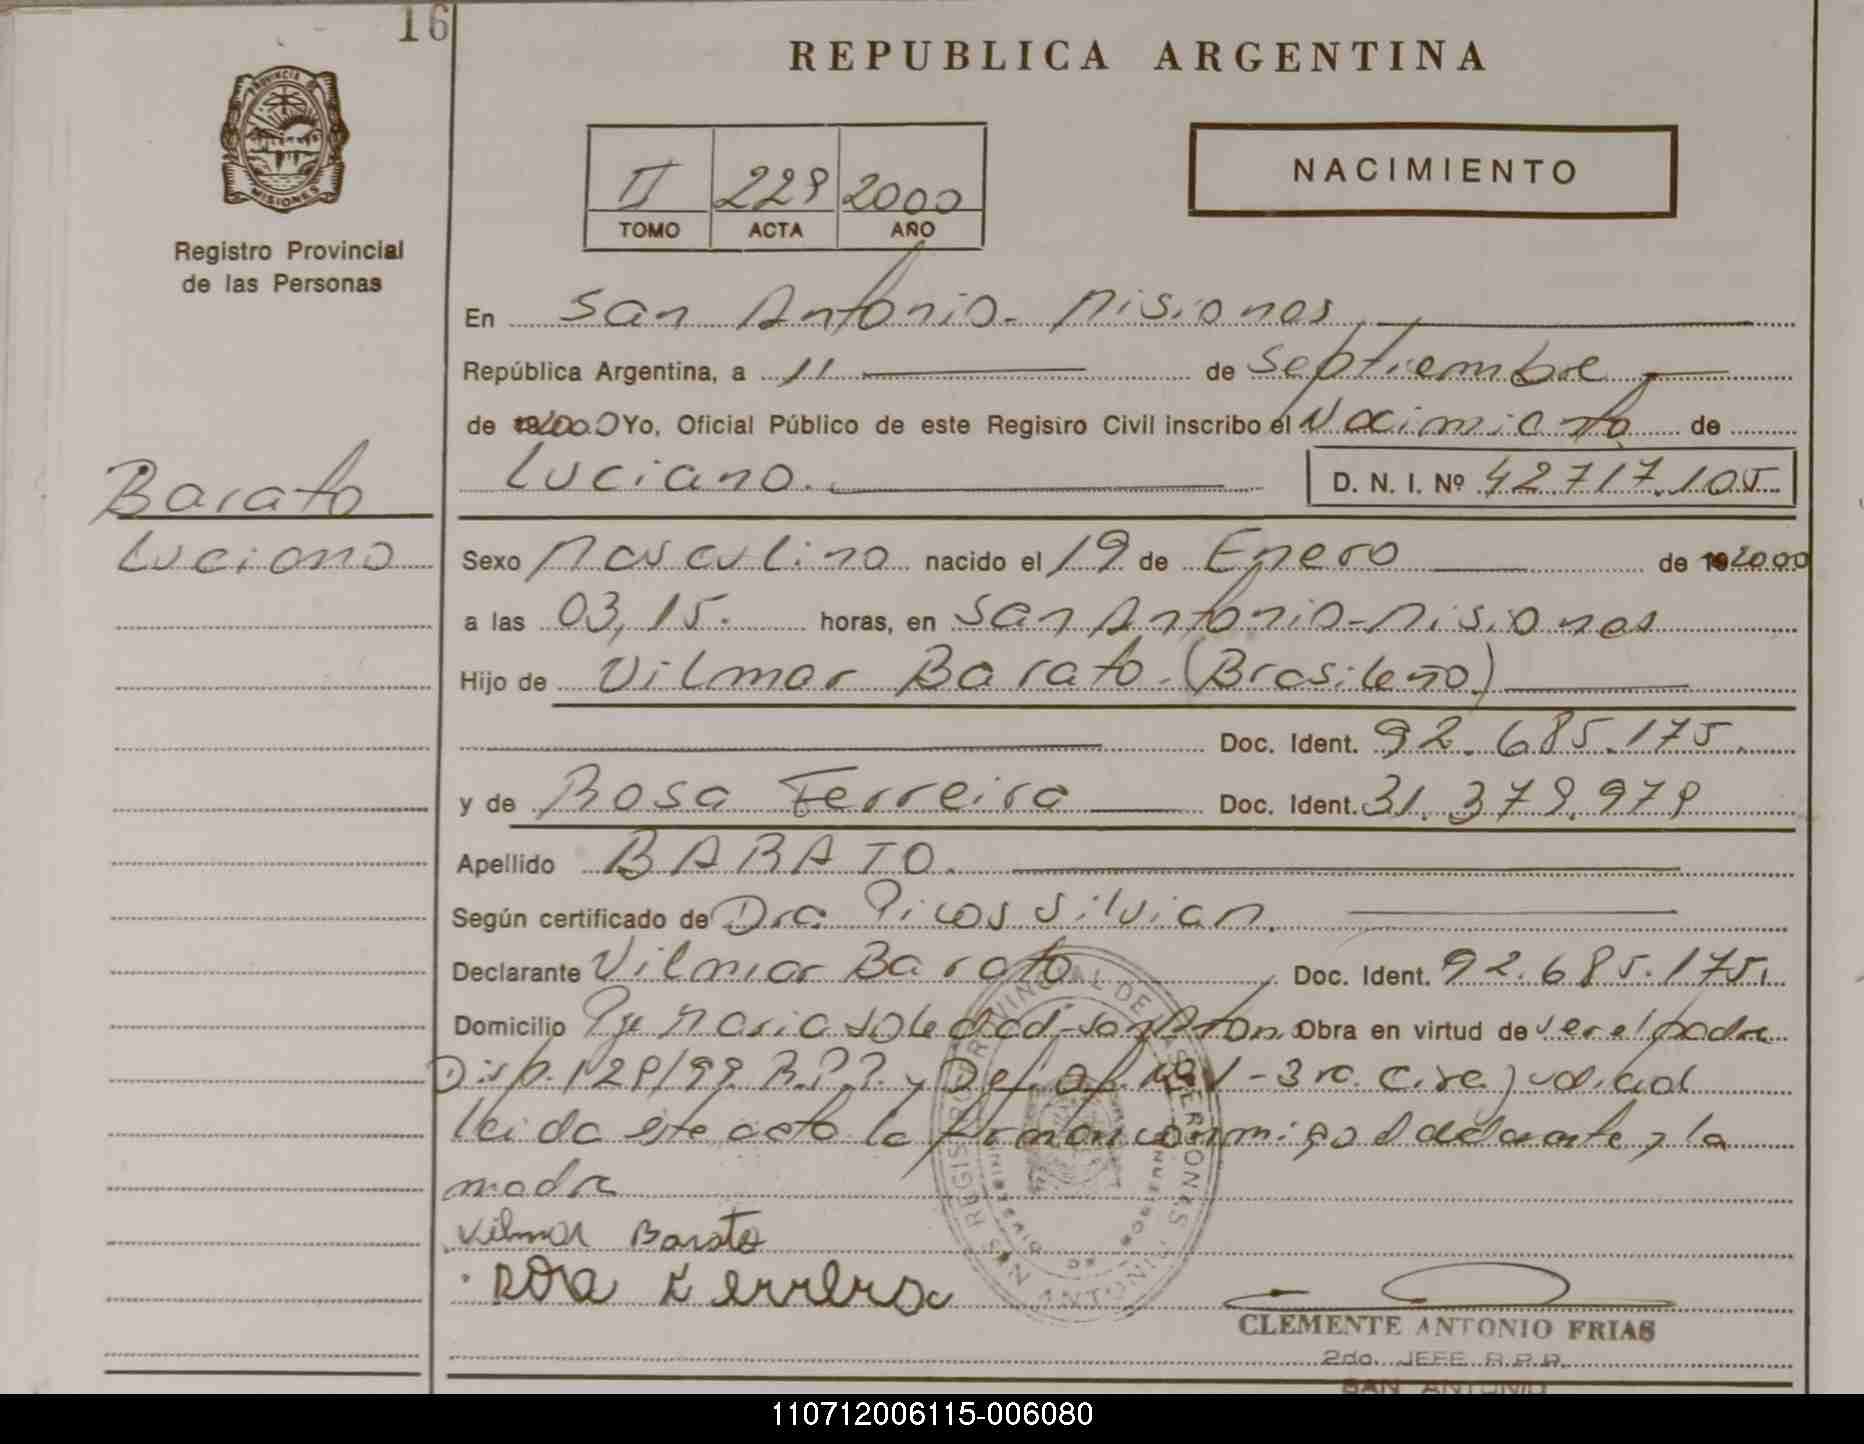 16
REPUBLICA ARGENTINA
PROVINCIA DE MISIONES
Registro Provincial
de las Personas
II 229 2000
TOMO ACTA AÑO
NACIMIENTO
En San Antonio - Misiones
República Argentina, a 11 de Septiembre
de 2000 Yo, Oficial Público de este Registro Civil inscribo el Nacimiento de
Luciano. D. N. I. Nº 42717.105
Barato
Luciano
Sexo Masculino nacido el 19 de Enero de 2000
a las 03,15. horas, en San Antonio - Misiones
Hijo de Vilmar Barato. (Brasileño)
Doc. Ident. 92.685.175.
y de Rosa Ferreira Doc. Ident. 31.379.979
Apellido BARATO.
Según certificado de Dra Picos Silvian.
Declarante Vilmar Barato Doc. Ident. 92.685.175.
Domicilio Pje Maria Soledad - San Anton. Obra en virtud de ser el padre
Disp. 129/99 R.P.P. y Def. Of. - 3 ra. Circ. judicial
leida este acta la firman conmigo el declarante y la
madre
Vilmar Barato
Rosa Ferreira
CLEMENTE ANTONIO FRIAS
2do. JEFE R.P.P.
SAN ANTONIO
110712006115-006080